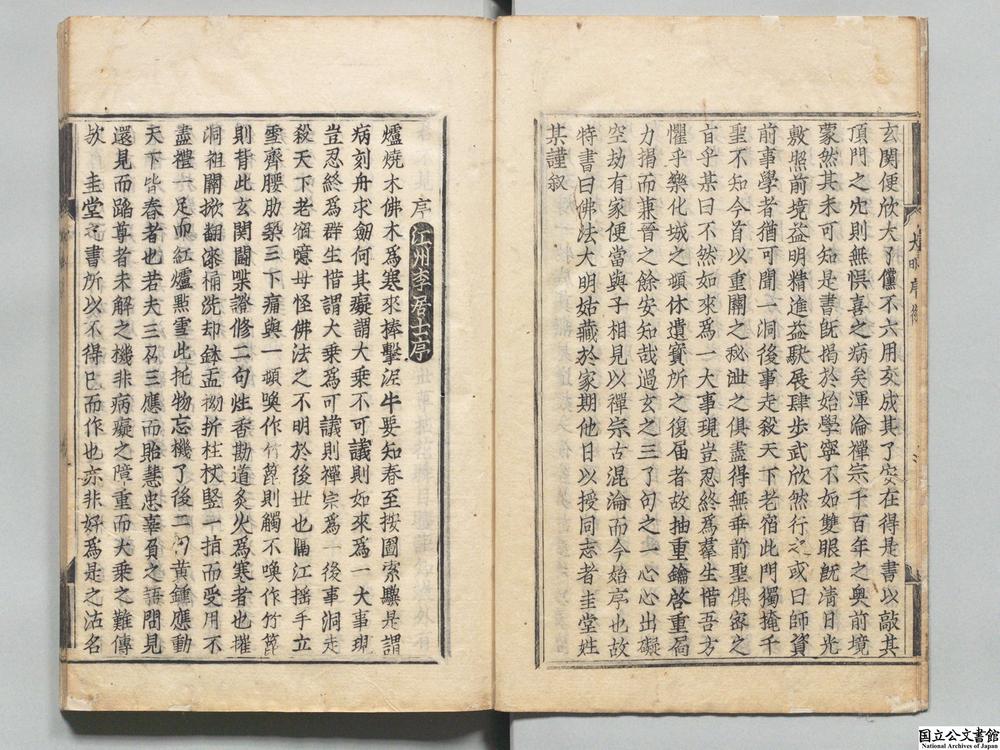 玄關便欣大了儻不六用交成其了安在得是書以敲其
頂門之穴則無惧喜之病矣渾淪禪宗千百年之奧前境
蒙然其未可知是書旣揭於始學寧不如雙眼旣清日光
敷照前境益明精進益駃展肆步武欣然行之或曰師資
前事學者猶可聞二洞後事走殺天下老宿此門獨掩千
聖不知今首以重關之秘泄之俱盡得無垂前聖俱密之
㫖乎某曰不然如來爲一大事現豈忍終爲羣生惜吾方
懼乎樂化城之頓休遺寶所之復届者故抽重鑰啓重扃
力搰而兼晉之餘安知哉過玄之三了句之一心心出礙
空劫有家便當與子相見以禪宗古混淪而今始序也故
特書曰佛法大明姑藏於家期他日以授同志者圭堂姓
某謹叙
大明序後
序 江州李居士序
爐燒木佛木爲寒來捧擊泥牛要知春至按圖索驥是謂
病刻舟求劒何其癡謂大乘不可議則如來爲一大事現
豈忍終爲群生惜謂大乘爲可議則禪宗爲一後事洞走
殺天下老宿噫毋怪佛法之不明於後世也隔江揺手立
雪齊腰肋築三下痛與一頓喚作竹篦則觸不喚作竹篦
則背此玄関閫㮣證修二句炷香勘道灸火爲寒者也摧
洞祖關掀翻漆桶洗却鉢盂拗折柱杖竪一指而受用不
盡禮六足而紅爐㸃雪此托物忘機了後二句黄鍾應動
天下皆春者也若夫三召三應而貽慧忠辜負之語問見
還見而蹈尊者未解之機非病癡之障重而大乘之難傳
欤 圭堂之書所以不得已而作也亦非好爲是之沽名
国立公文書館
National Archives of Japan